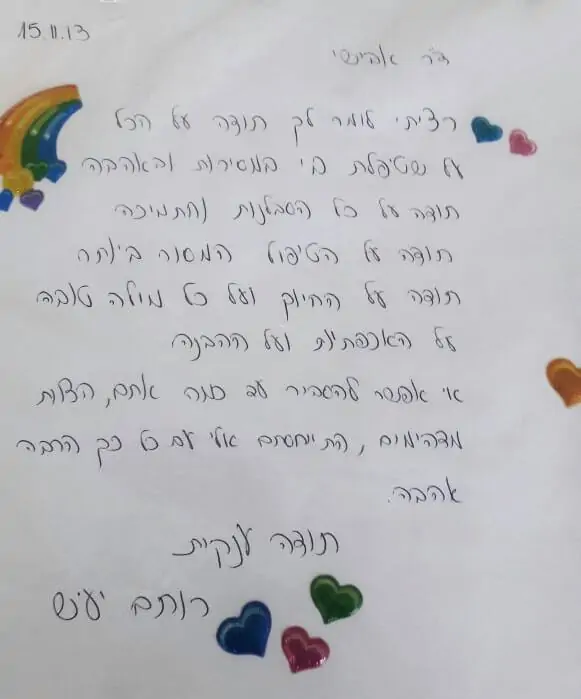 15.11.13
ד"ר אבישי
רציתי לומר לך תודה על הכל
על שטיפלת בי במסירות ובאהבה
תודה על כל הסבלנות והתמיכה
תודה על הטיפול המסור ביותר
תודה על החיוך ועל כל מילה טובה
על האכפתיות ועל ההבנה
אי אפשר להסביר עד כמה אתם, הצוות
מדהימים, התייחסתם אלי עם כל כך הרבה
אהבה.
תודה ענקית
רותם יעיש